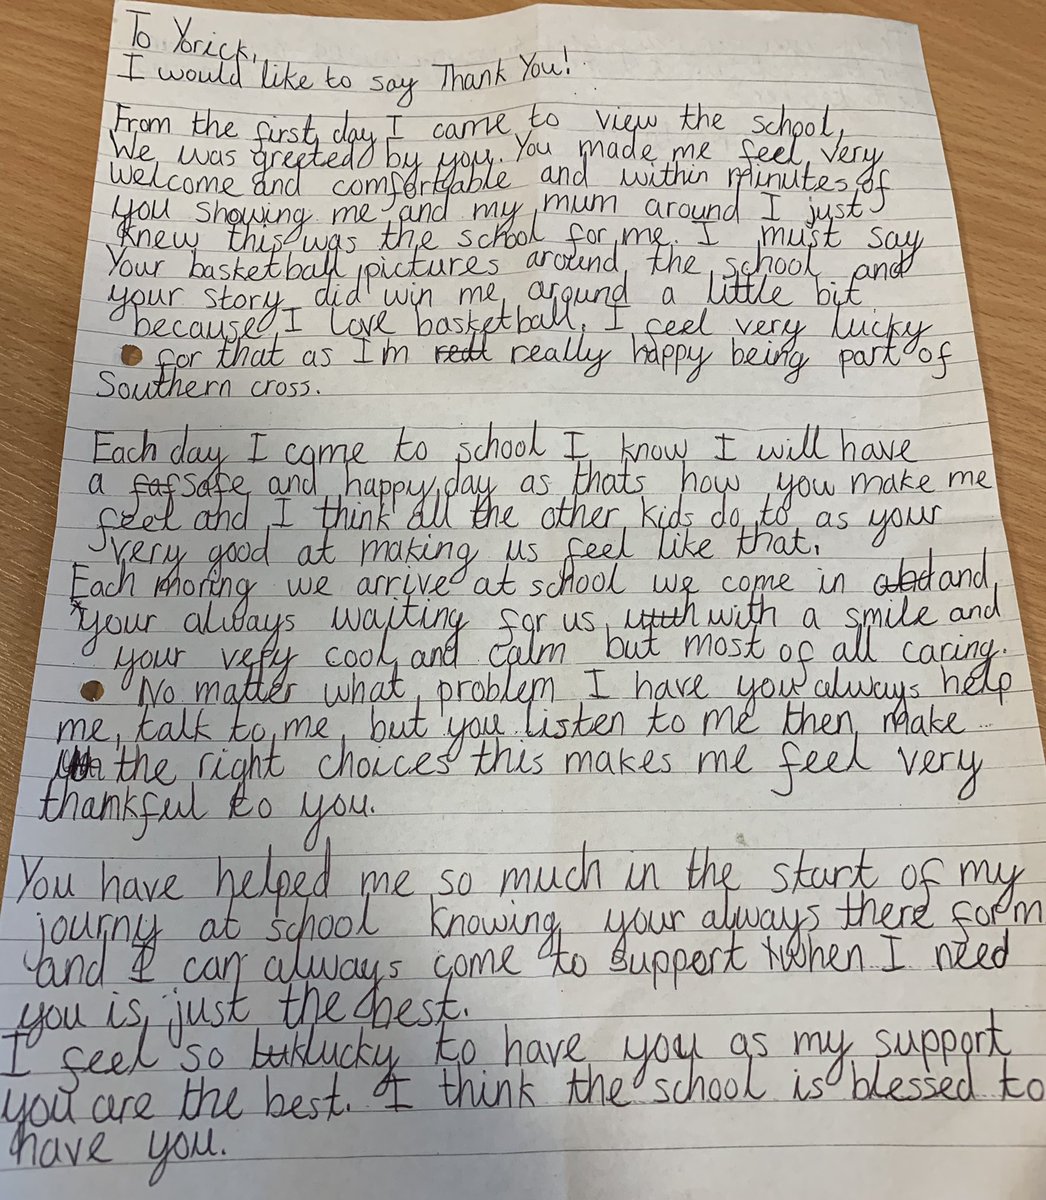 To Yorick,
I would like to say Thank You!
From the first day I came to view the school,
We was greeted by you. You made me feel very
welcome and comfortable and within minutes of
you showing me and my mum around I just
knew this was the school for me. I must say
Your basketball pictures around the school and
your story did win me around a little bit
because I love basketball. I feel very lucky
for that as I'm really happy being part of
Southern cross.
Each day I come to school I know I will have
a safe and happy day as thats how you make me
feel and I think all the other kids do to as your
very good at making us feel like that.
Each moring we arrive at school we come in and
your always waiting for us with a smile and
your very cool and calm but most of all caring.
No matter what problem I have you always help
me, talk to me, but you listen to me then make
the right choices this makes me feel very
thankful to you.
You have helped me so much in the start of my
journy at school knowing your always there for m
and I can always come to support when I need
you is just the best.
I feel so lucky to have you as my support
you are the best. I think the school is blessed to
have you.